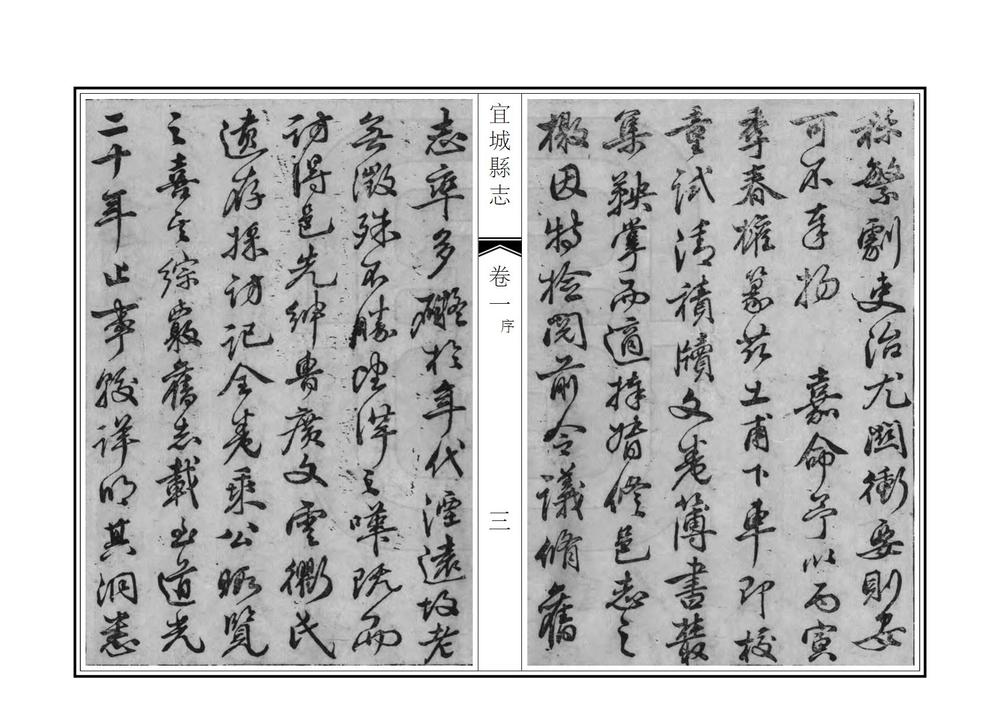 稱繁劇吏治尤關衝要則安
可不奉揚　嘉命予以丙寅
季春權篆茲土甫下車即校
童試清積牘文卷簿書叢
集鞅掌而適接督修邑志之
檄因特檢閱前令議脩舊
宜城縣志
卷一
序
三
志率多礙於年代湮遠故老
無徵殊不勝之嘆既而
訪得邑先紳魯廣文雲衢氏
遺存採訪記全卷乘公暇覽
之喜其綜覈舊志載至道光
二十年止事較詳明其洞悉